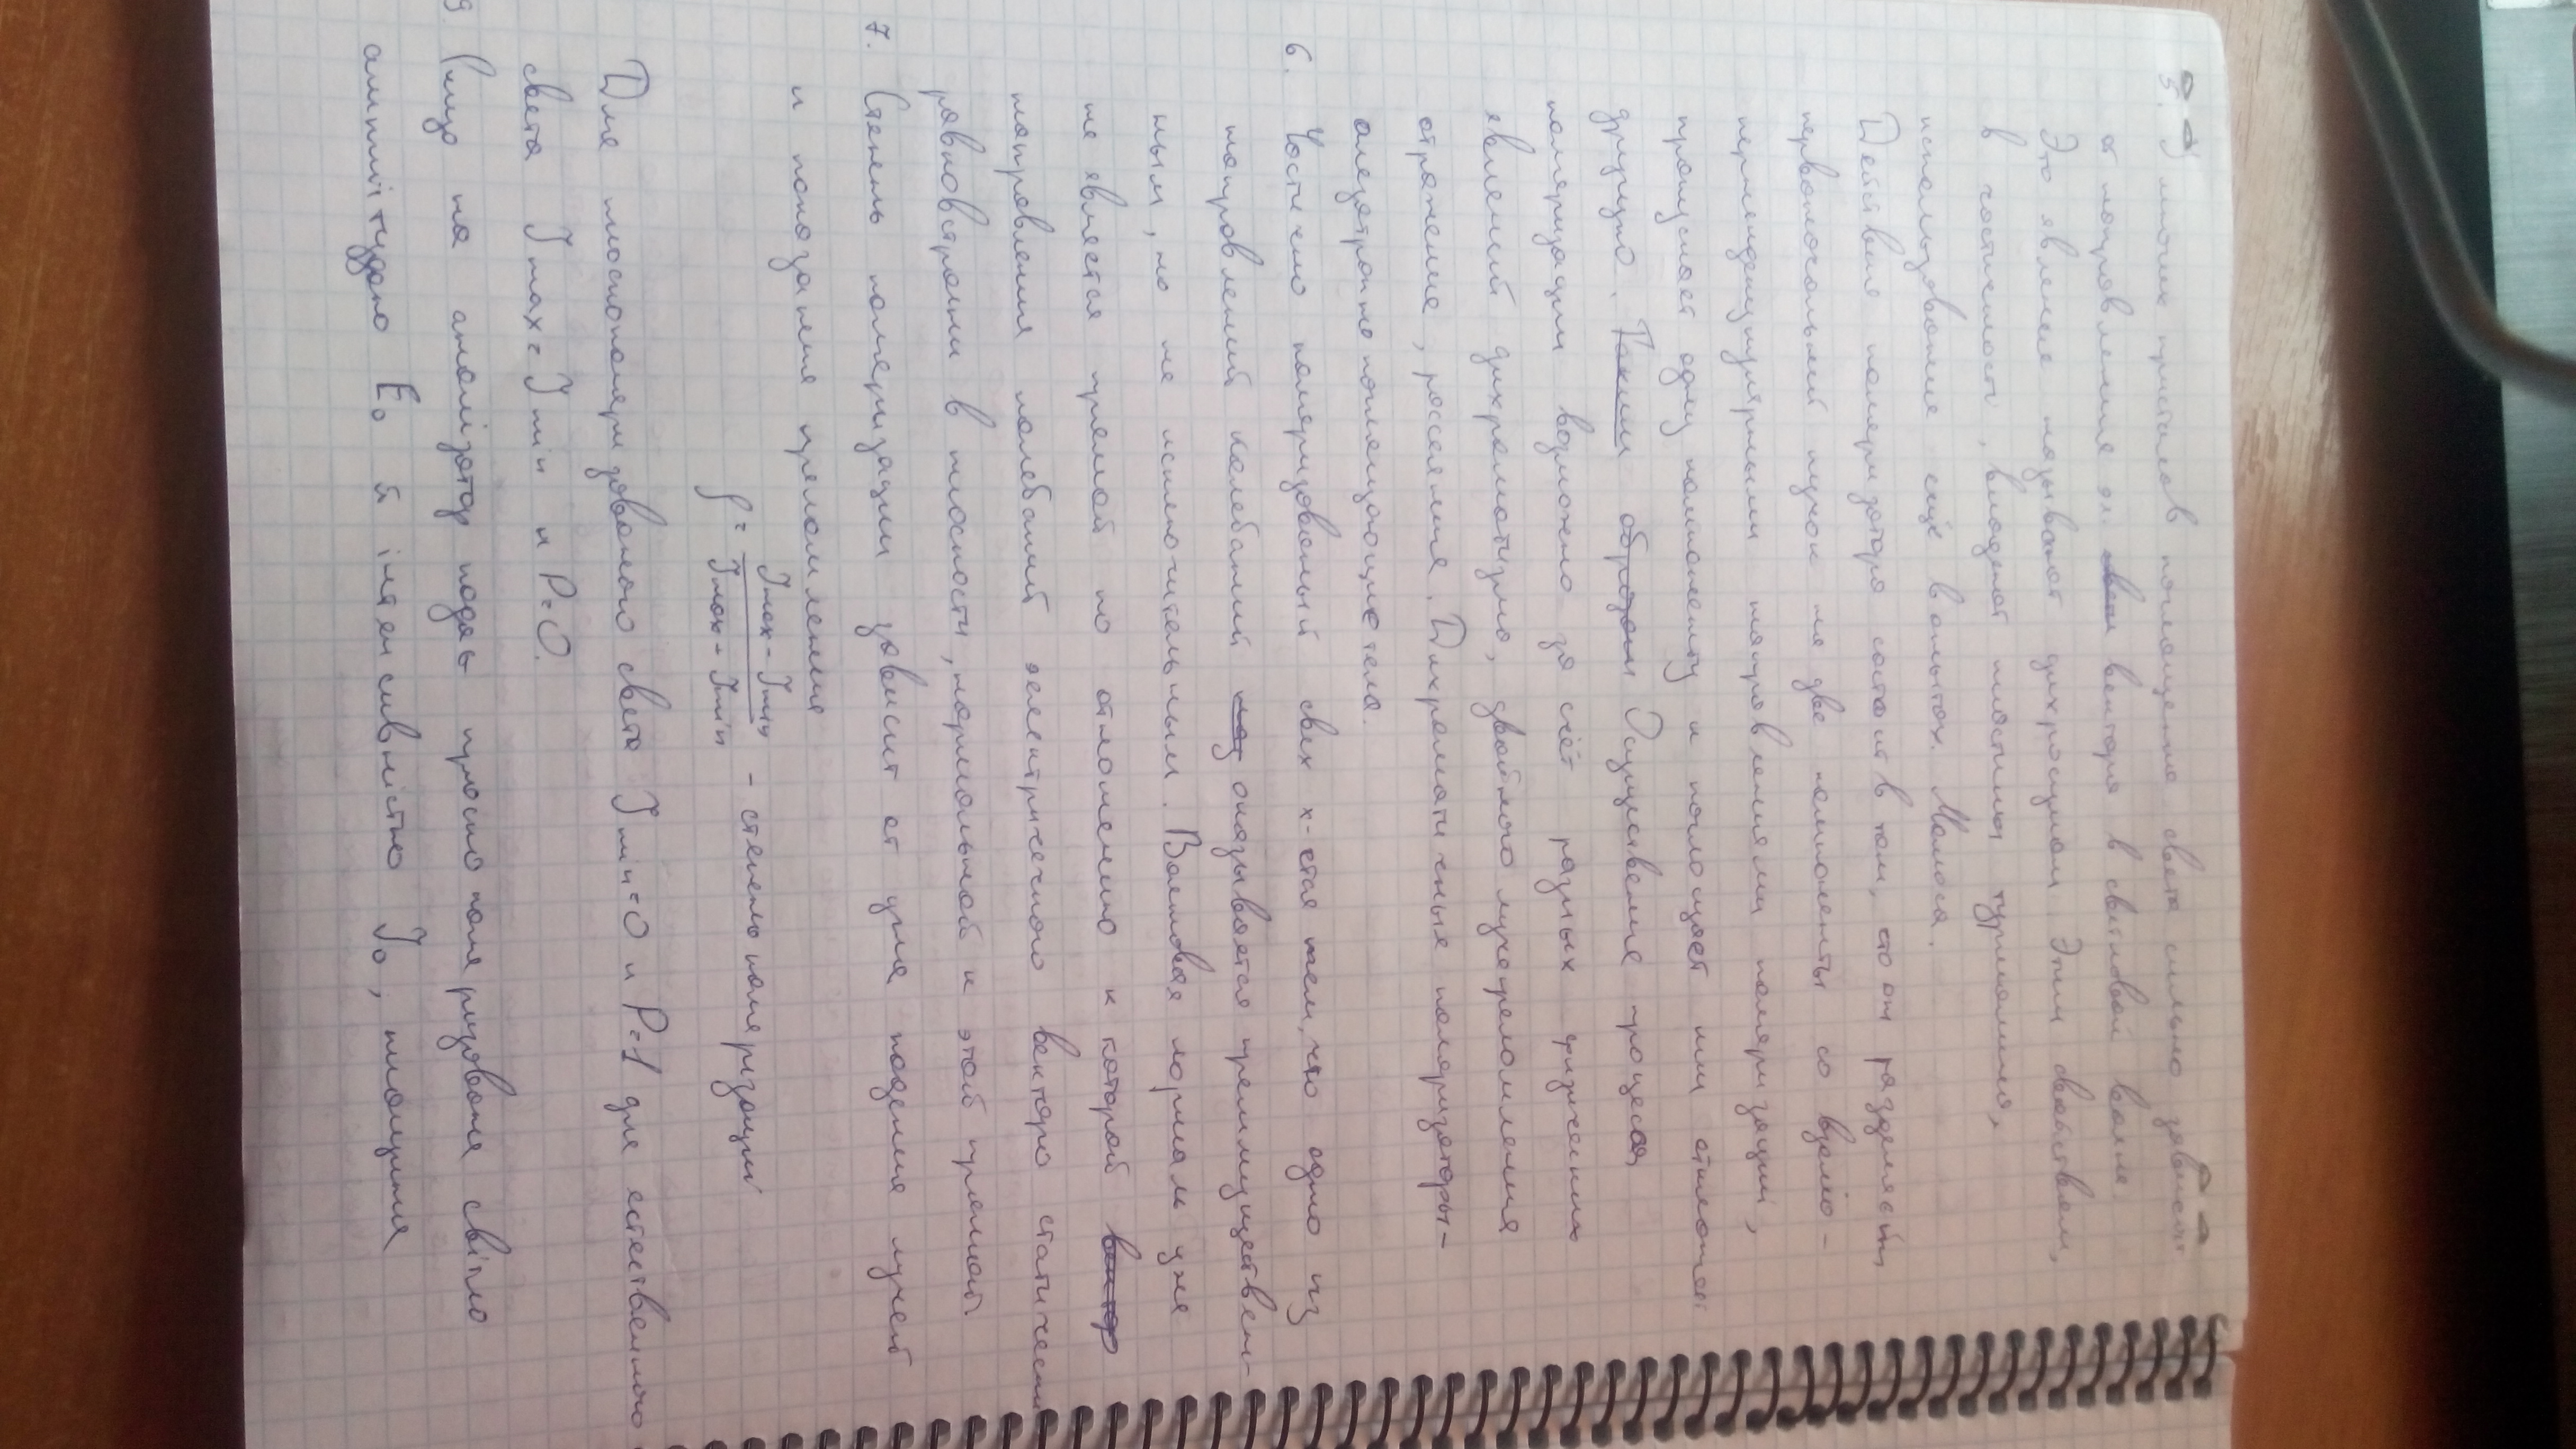 5. У многих кристалов поглощение света сильно зависит
от направления эл. вектора в световой волне.
Это явление называют дихроизмом. Этим свойством,
в частности, владеют пластины турмалина,
использование ещё в опытах Малюса.
Действие поляризатора состоит в том, что он разделяет
первоначальный пучок на две компоненты со взаємо-
перпендикулярными направлениями поляризации,
пропускает одну компоненту и поглощает или отклоняет
другую. Таким образом Осуществление процесса
поляризации возможно за счёт разных физических
явлений дихроматизма, двойного лучепреломления
отражение, рассеяния. Дихроматичные поляризаторы-
анизотропно поглощающие тела.
6. Частично поляризованый свех х-ется тем, что одно из
направлений колебаний оказывается преимуществен-
ным, но не исключительным. Волновая нормаль уже
не является прямой по отношению к которой вектор
направления колебаний электрического вектора статически
равновстроны в плоскости, нормальной к этой прямой
7. Степень поляризации зависит от угла падения лучей
и показателя преломления
ρ = Jmax - Jmin / Jmax + Jmin - степень поляризации
Для плоскополяризованого света Jmin=0 и P=1 для естественного
света Jmax=Jmin и P=0.
9 Якщо на аналізатор падає плоско поляризоване світло
амплітудою E₀ й інтенсивністю J₀, площина